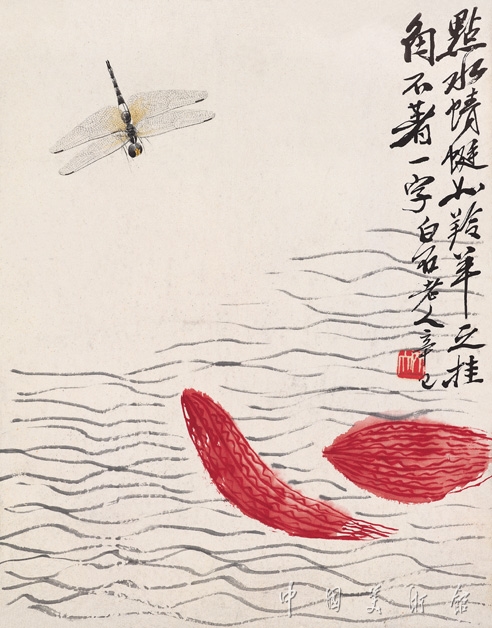 點水蜻蜓如羚羊之挂
角不着一字白石老人辛巳
中国美术馆